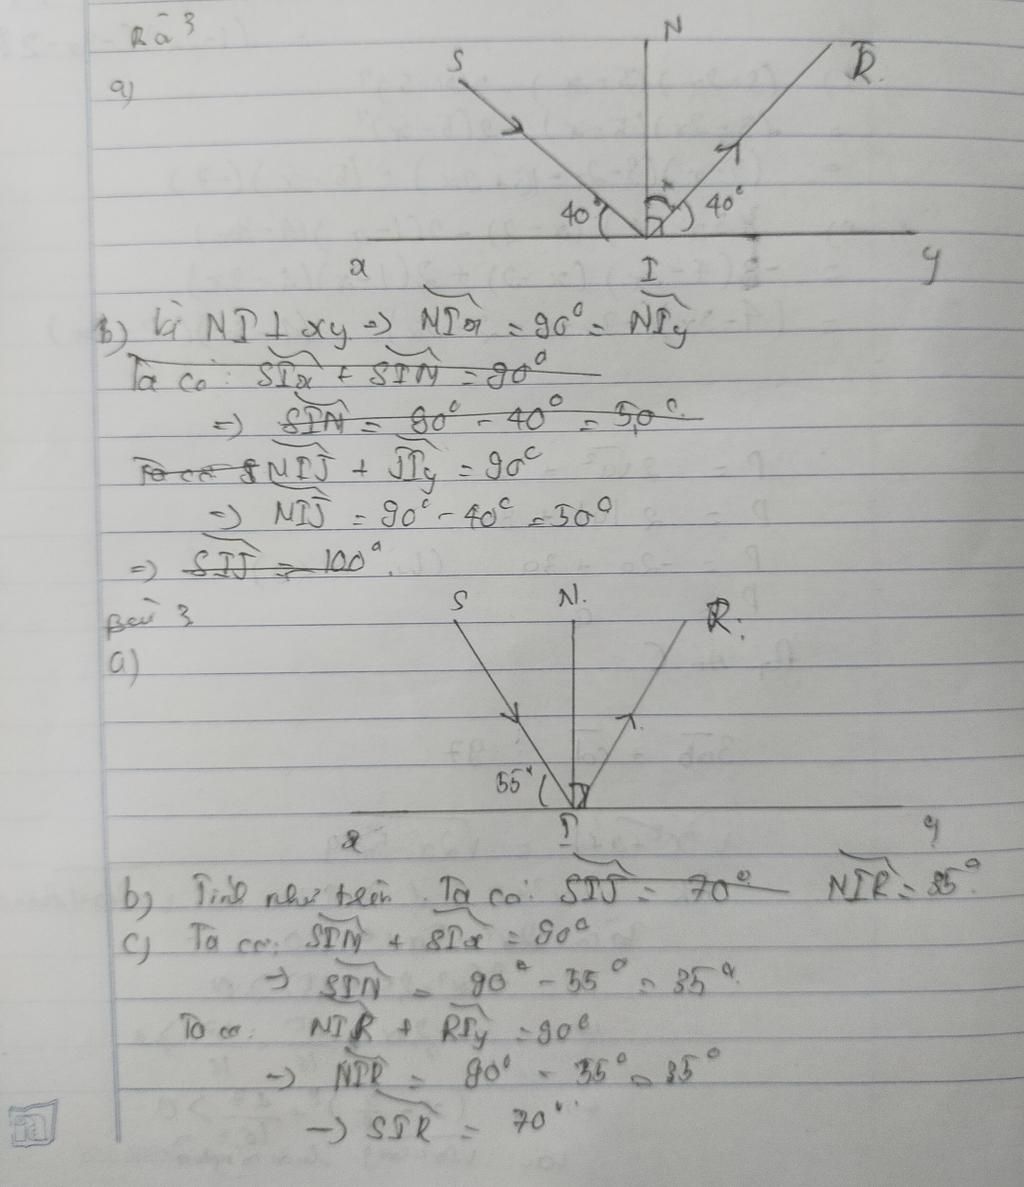 Bài 3
a)
S N R.
40° 40°
x I y
b) Vì NI ⊥ xy => NIx = 90° = NIy
Ta có: SIx + SIN = 90°
=> SIN = 90° - 40° = 50°
Ta có NIJ + JIy = 90°
=> NIJ = 90° - 40° = 50°
=> SIJ = 100°.
Bài 3
a)
S N. R.
55°
x I y
b) Tính như trên. Ta có: SIJ = 70° NIR = 35°.
c) Ta có: SIN + SIx = 90°
-> SIN = 90° - 55° = 35°.
Ta có: NIR + RIy = 90°
-> NIR = 90° - 55° = 35°
-> SIR = 70°